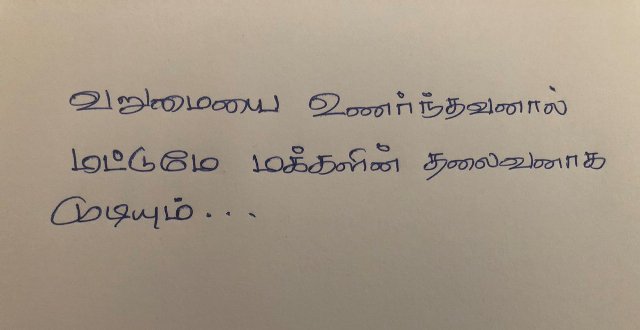 வறுமையை உணர்ந்தவனால்
மட்டுமே மக்களின் தலைவனாக
முடியும்...